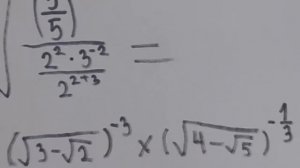 √ (3/5)
2² · 3⁻²
2²⁺³ =
(√3-√2)⁻³ × (√4-√5)^-1/3